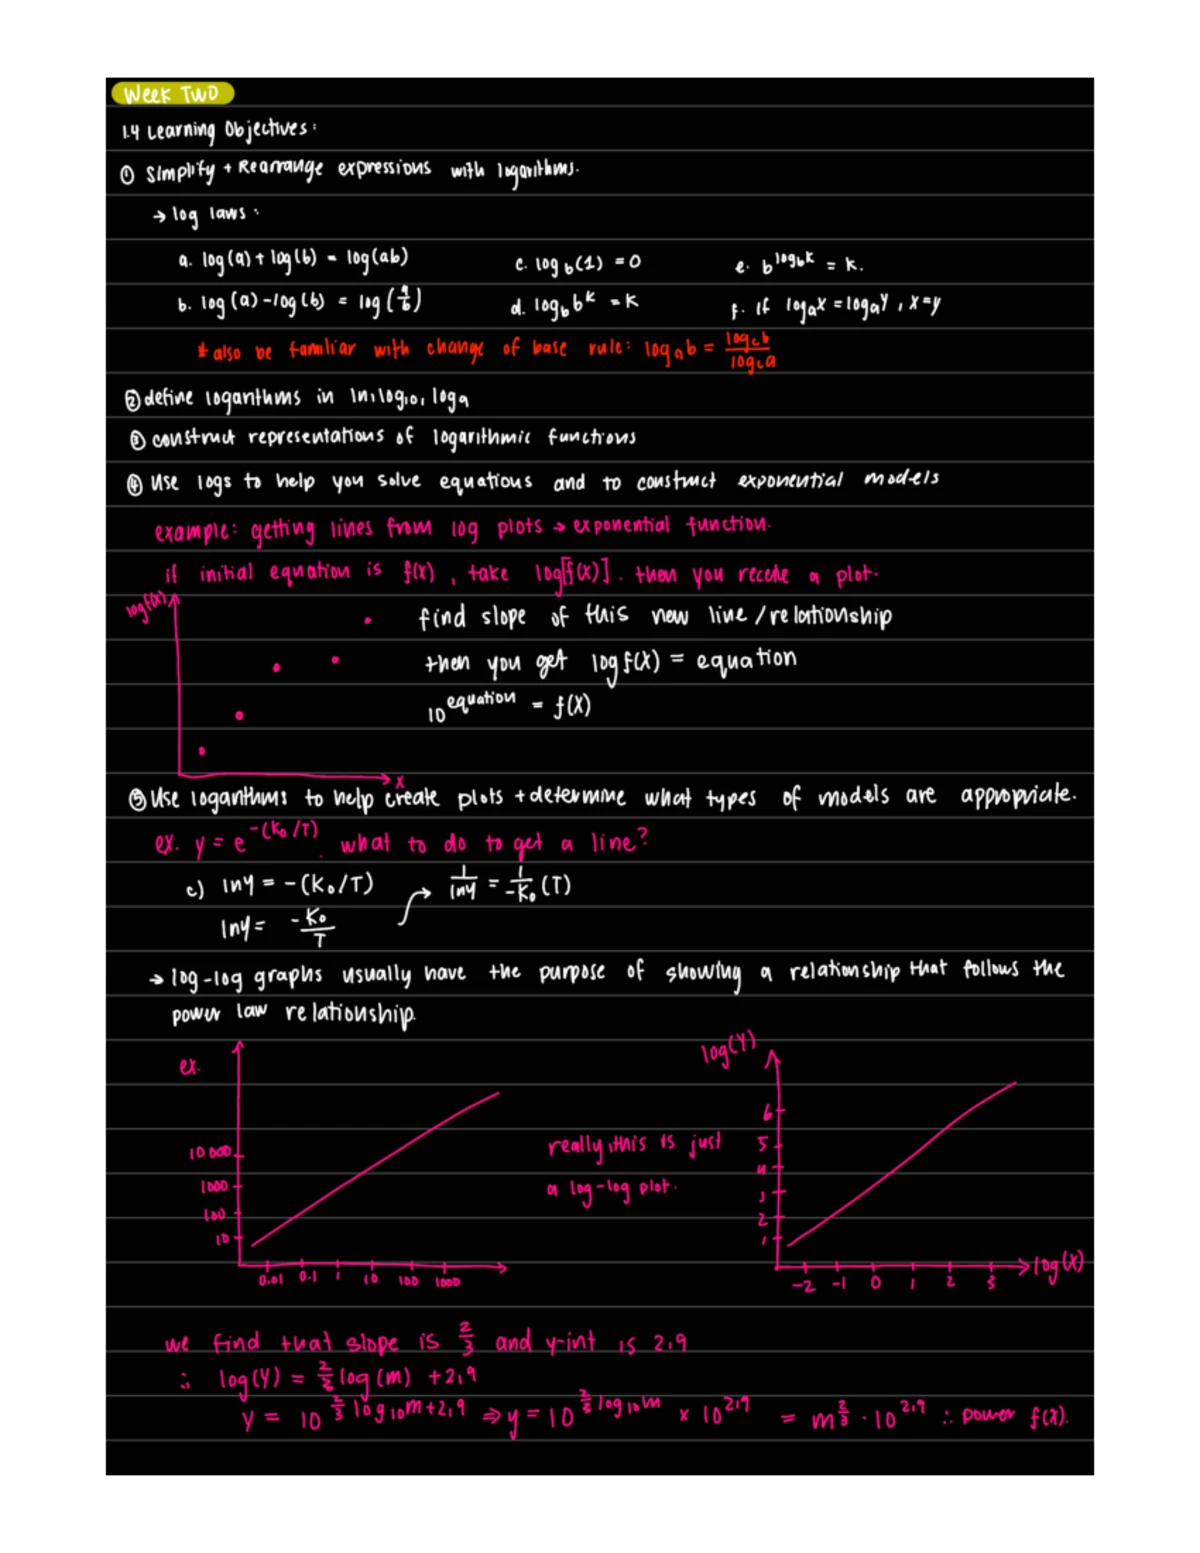 Week Two
1.4 Learning Objectives:
① Simplify + Rearrange expressions with logarithms.
→ log laws:
a. log(a) + log(b) = log(ab) c. log_b(1) = 0 e. b^(log_b k) = k.
b. log(a) - log(b) = log(a/b) d. log_b b^k = k f. if log_a x = log_a y, x=y
* also be familiar with change of base rule: log_a b = log_c b / log_c a
② define logarithms in ln, log10, log a
③ construct representations of logarithmic functions
④ Use logs to help you solve equations and to construct exponential models
example: getting lines from log plots → exponential function.
if initial equation is f(x), take log[f(x)]. then you recede a plot.
logf(x)
find slope of this new line/relationship
then you get logf(x) = equation
10^equation = f(x)
x
⑤ Use logarithms to help create plots + determine what types of models are appropriate.
ex. y = e^-(K0/T). what to do to get a line?
c) lny = -(K0/T) → 1/lny = 1/-K0 (T)
lny = -K0/T
→ log-log graphs usually have the purpose of showing a relationship that follows the
power law relationship.
ex.
10 000
1000
100
10
0.01 0.1 1 10 100 1000
really, this is just
a log-log plot.
log(Y)
6
5
4
3
2
1
-2 -1 0 1 2 3
log(x)
we find that slope is 2/3 and y-int is 2.9
∴ log(Y) = 2/3 log(m) + 2.9
Y = 10^(2/3 log10 m + 2.9) ⇒ y = 10^(2/3 log10 m) × 10^2.9 = m^(2/3) · 10^2.9 ∴ power f(x).